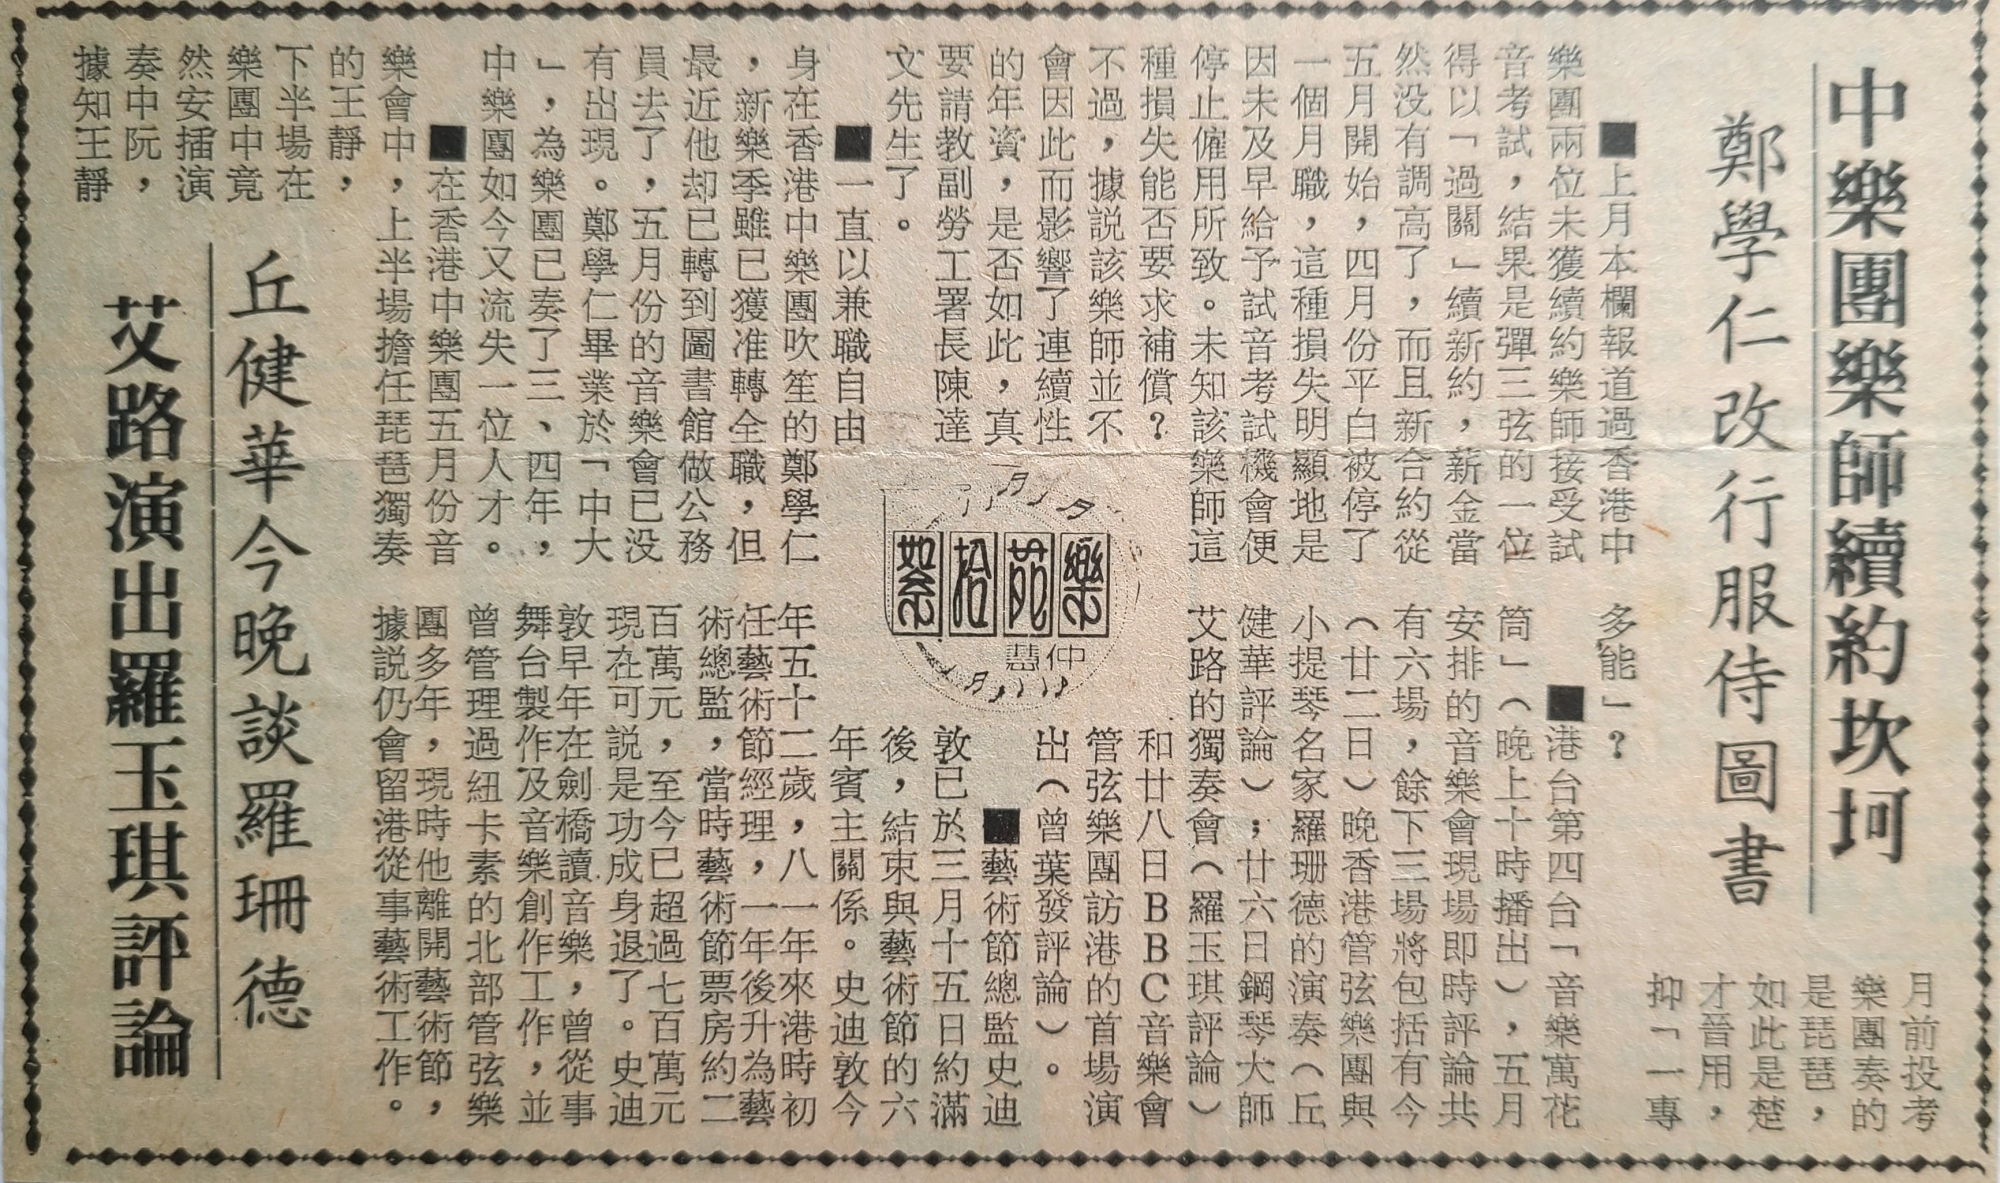 中樂團樂師續約坎坷
鄭學仁改行服侍圖書
■上月本欄報道過香港中
樂團兩位未獲續約樂師接受試
音考試，結果是彈三弦的一位
得以「過關」續新約，薪金當
然没有調高了，而且新合約從
五月開始，四月份平白被停了
一個月職，這種損失明顯地是
因未及早給予試音考試機會便
停止僱用所致。未知該樂師這
種損失能否要求補償？
不過，據説該樂師並不
會因此而影響了連續性
的年資，是否如此，真
要請教副勞工署長陳達
文先生了。
■一直以兼職自由
身在香港中樂團吹笙的鄭學仁
，新樂季雖已獲准轉全職，但
最近他却已轉到圖書館做公務
員去了，五月份的音樂會已没
有出現。鄭學仁畢業於「中大
」，為樂團已奏了三、四年，
中樂團如今又流失一位人才。
■在香港中樂團五月份音
樂會中，上半場擔任琵琶獨奏
的王靜，
下半場在
樂團中竟
然安插演
奏中阮，
據知王靜
月前投考
樂團奏的
是琵琶，
如此是楚
才晉用，
抑「一專
多能」？
■港台第四台「音樂萬花
筒」（晚上十時播出），五月
安排的音樂會現場即時評論共
有六場，餘下三場將包括有今
（廿二日）晚香港管弦樂團與
小提琴名家羅珊德的演奏（丘
健華評論）；廿六日鋼琴大師
艾路的獨奏會（羅玉琪評論）
和廿八日BBC音樂會
管弦樂團訪港的首場演
出（曾葉發評論）。
■藝術節總監史迪
敦已於三月十五日約滿
後，結束與藝術節的六
年賓主關係。史迪敦今
年五十二歲，八一年來港時初
任藝術節經理，一年後升為藝
術總監，當時藝術節票房約二
百萬元，至今已超過七百萬元
現在可説是功成身退了。史迪
敦早年在劍橋讀音樂，曾從事
舞台製作及音樂創作工作，並
曾管理過紐卡素的北部管弦樂
團多年，現時他離開藝術節，
據説仍會留港從事藝術工作。
樂苑拾絮
仲慧
丘健華今晚談羅珊德
艾路演出羅玉琪評論